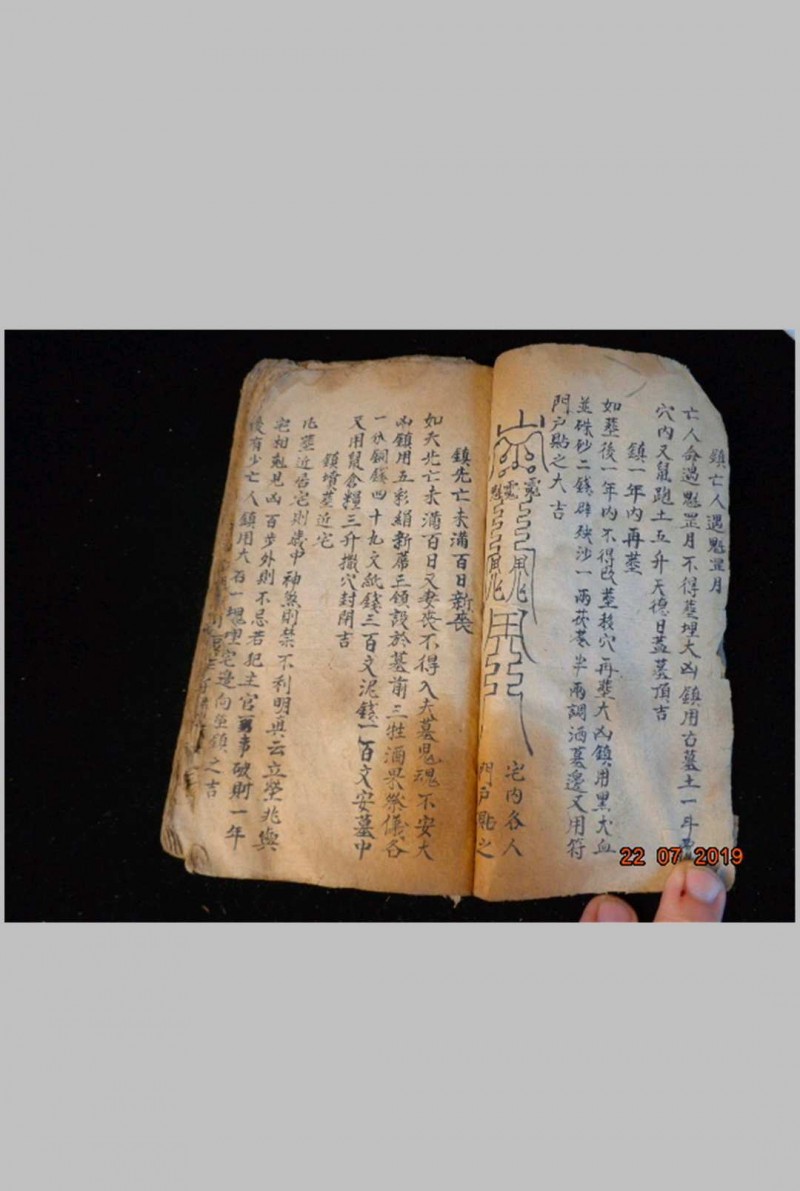 鎮亡人遇魁罡月
亡人命遇魁罡月不得塟埋大凶鎮用古墓土一斗
穴内又鼠跑土五升天德日蓋墓頂吉
鎮一年内再塟
如塟後一年内不得改塟移穴再塟大凶鎮用黑犬血
並硃砂二錢辟殃沙一兩茯苓半兩調洒墓邊又用符
門户貼之大吉
宅内各人
門户貼之
鎮先亡未滿百日新丧
如夫先亡未滿百日又妻丧不得入夫墓鬼魂不安大
凶鎮用五彩絹新蓆三領設於墓前三牲酒果祭儀各
一分銅錢四十九文紙錢三百文泥錢一百文安墓中
又用鼠倉糧三升撒穴封閉吉
鎮墳墓近宅
凡塟近宅則歲中神煞則禁不利明真云立塋兆與
宅相尅見凶百步外則不忌若犯土官破則一年
後有少亡人鎮用大石一塊埋宅邊向鎮之吉
22 07 2019